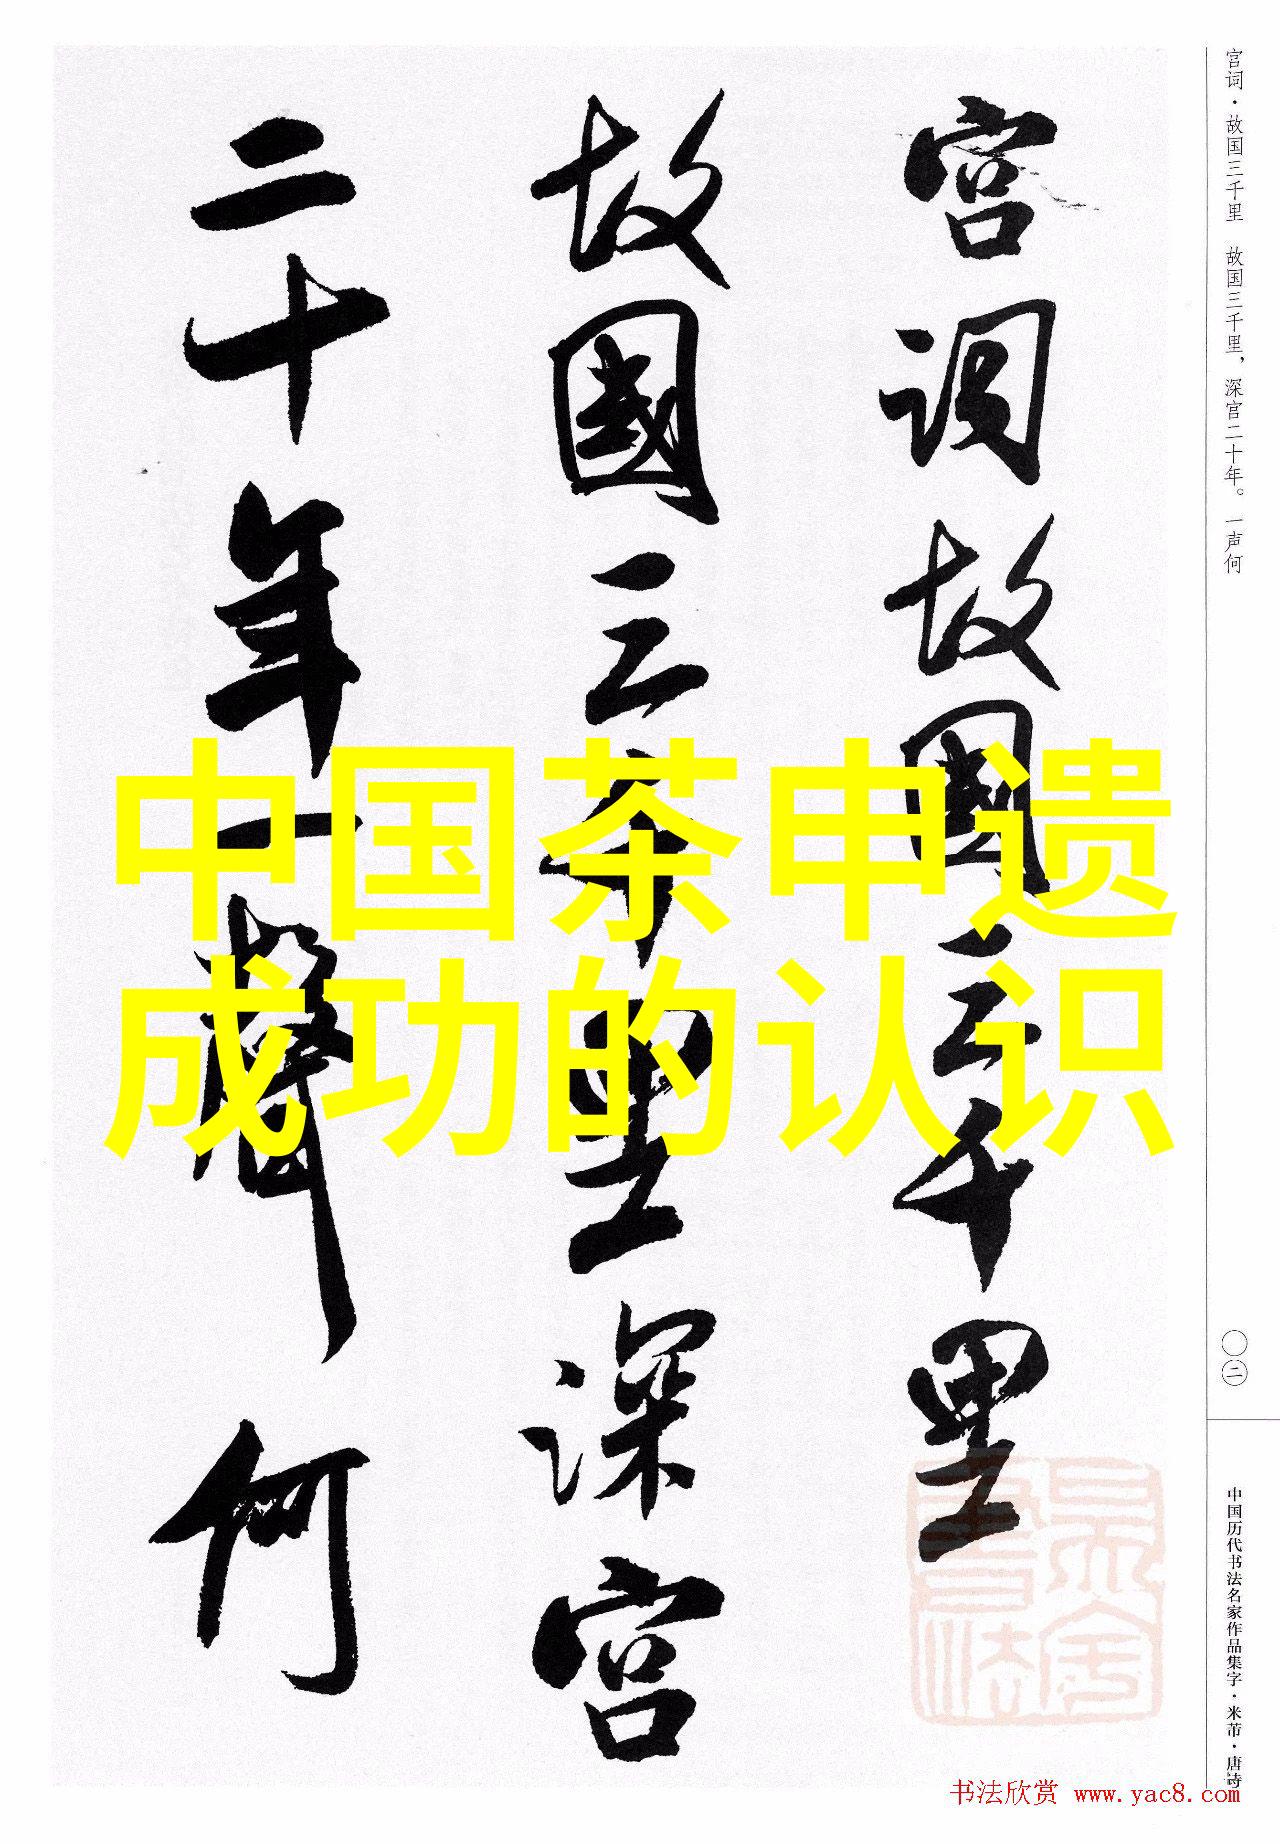 宫词故国三千里
故國三千里深宫
二十年一聲何
中国茶申遗
成功的认识
宫词·故国三千里 故国三千里，深宫二十年。一声何
〇二
中国历代书法名家作品集字·米芾·唐诗
书法欣赏 www.yac8.com